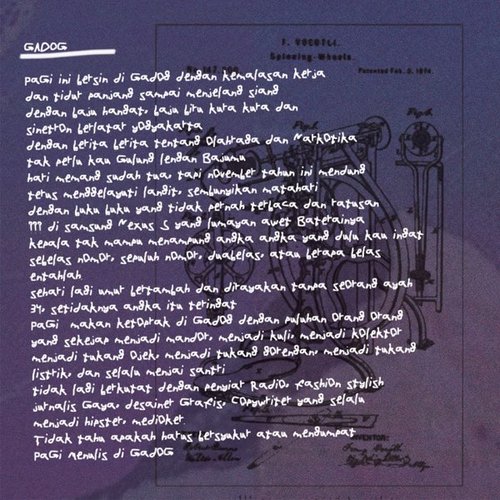 GADOG
F. VOEGTLI.
Spinning-Wheels.
No. 147,200.
Patented Feb. 3, 1874.
paGi ini bersin di GadoG dengan kemalasan kerja
dan tidur panjang sampai menjelang siang
dengan baju hangat, baju biru kura kura dan
sinetron berlatar yogyakarta
dengan berita berita tentang Olahraga dan Narkotika
tak perlu kau Gulung lengan Bajumu
hari memang sudah tua, tapi november tahun ini mendung
terus menggelayuti langit, sembunyikan matahari
dengan buku buku yang tidak pernah terbaca dan ratusan
??? di samsung Nexus S yang lumayan awet Baterainya
kepala tak mampu menampung angka angka yang dulu kau ingat
sebelas nomor, sepuluh nomor, duabelas, atau berapa belas
entahlah.
sehari lagi umur bertambah dan dirayakan tanpa seorang ayah
34, setidaknya angka itu teringat
paGi makan ketoprak di GadoG dengan puluhan Orang Orang
yang sekejap menjadi mandor, menjadi kuli, menjadi kolektor
menjadi tukang Ojek, menjadi tukang gorengan, menjadi tukang
listrik, dan selalu menjai santri
tidak lagi berkutat dengan penyiar RadiO, FashiOn stylish
jurnalis Gaya, desainer Grafis, COpywriter yang selalu
menjadi hipster, mediOker
Tidak tahu apakah harus bersyukur atau mengumpat
paGi menulis di GadOG
INVENTOR: